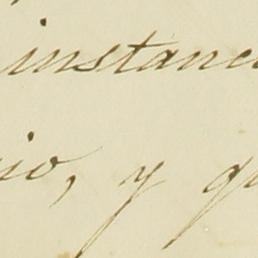 instanc
io, y q